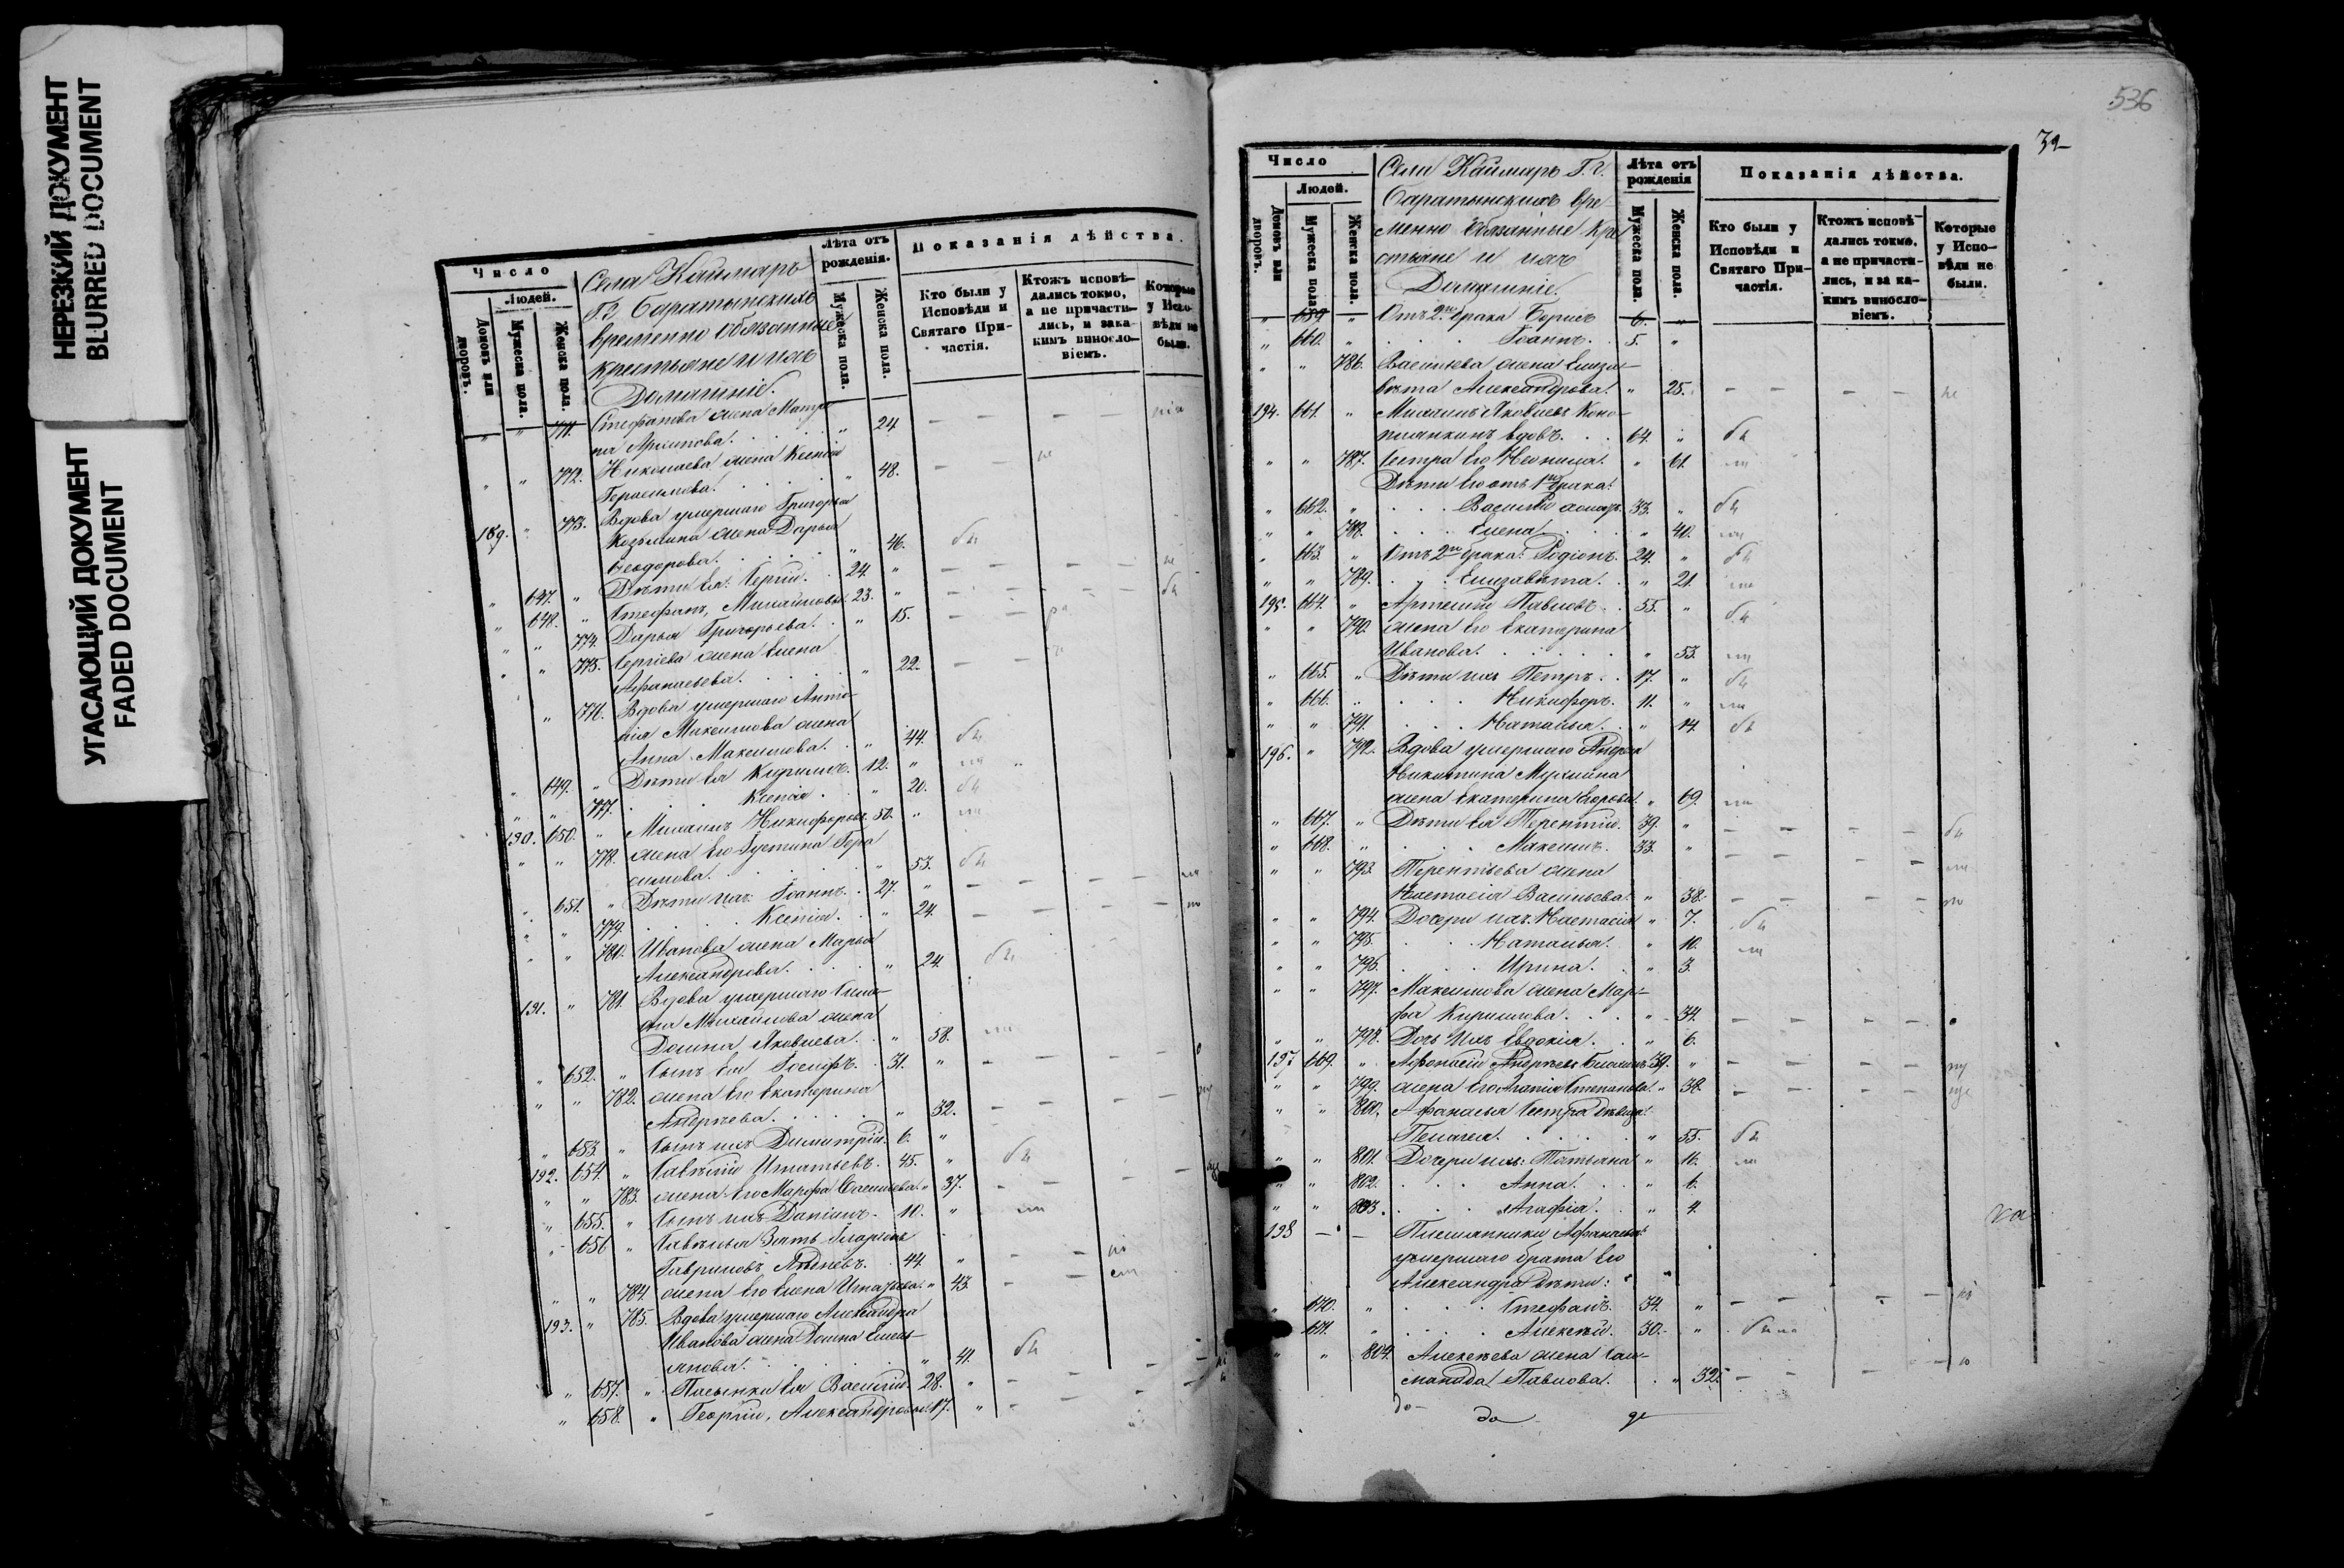 НЕРЕЗКИЙ ДОКУМЕНТ
BLURRED DOCUMENT
УГАСАЮЩИЙ ДОКУМЕНТ
FADED DOCUMENT
Число
Людей.
Домовъ или дворовъ.
Мужеска пола.
Женска пола.
Села Каймаръ
Г. Г. Баратынскихъ
временно обязанные
крестьяне и ихъ
Домашніе.
Лѣта отъ рожденія.
Мужеска пола.
Женска пола.
Показанія дѣйства.
Кто были у Исповѣди и Святаго Причастія.
Ктожъ исповѣдались токмо, а не причастились, и за какимъ винословіемъ.
Которые у Исповѣди не были.
" " 771. Стефанова жена Матре
на Архипова. " 24
" " 772. Николаева жена Ксенія
Герасимова. " 48.
189. " 773. Вдова умершаго Григорья
Козьмина жена Дарья
Ѳеодорова. " 46.
" 647. " Дѣти ея: Сергій. 24. "
" 648. " Стефанъ, Михайловы 23. "
" " 774. Дарья Григорьева. " 15.
" " 775. Сергіева жена Елена
Афанасьева. " 22.
" 776. Вдова умершаго Анто-
нія Максимова жена
Анна Максимова. " 44.
" 649. " Дѣти ея Кириллъ. 12. "
" " 777. Ксенія " 20.
190. 650. " Михаилъ Никифоровъ 50. "
" " 778. жена его Іустина Гера
симова. " 53.
" 651. " Дѣти ихъ: Іоаннъ. 27. "
" " 779. Ксенія. " 24.
" " 780. Иванова жена Марья
Александрова. " 24.
191. " 781. Вдова умершаго
Михайлова жена
Домна Яковлева. " 58.
" 652. " Сынъ ея Іосифъ. 31. "
" " 782. жена его Екатерина
Андреева. " 32.
" 653. " Сынъ ихъ Димитрій. 6. "
192. 654. " Савелій Игнатьевъ. 45. "
" " 783. жена его Марфа Васильева. " 37.
" 655. " Сынъ ихъ Даніилъ. 10. "
" 656 " Савелья Зять Иларіонъ
Гавриловъ 44. "
" " 784. жена его Елена Игнатьева. " 43.
193. " 785. Вдова умершаго Александра
Иванова жена Домна Емель-
янова. " 41.
" 657. " Пасынки ея Василій. 28. "
" 658. " Георгій, Александровы. 17. "
536
32
Число
Людей.
Домовъ или дворовъ.
Мужеска пола.
Женска пола.
Села Каймаръ Г. Г.
Баратынскихъ вре-
менно обязанные Кре
стьяне и ихъ
Домашніе.
Лѣта отъ рожденія
Мужеска пола.
Женска пола.
Показанія дѣйства.
Кто были у Исповѣди и Святаго Причастія.
Ктожъ исповѣдались токмо, а не причастились, и за какимъ винословіемъ.
Которые у Исповѣди не были.
" 659 " Отъ 2го брака Борисъ 6. "
" 660. Іоаннъ. 5. "
" " 786. Васильева жена Елиза-
вета Александрова. " 25.
194. 661 " Михаилъ Яковлевъ Коно-
плянкинъ вдовъ. 64. "
" " 787. Сестра его Неонила. " 61.
Дѣти его отъ 1го брака:
" 662. " Василій холостъ. 33. "
" " 788. Елена " 40.
" 663 " Отъ 2го брака: Родіонъ. 24. "
" " 789. Елизавета. " 21.
195. 664. " Артемій Павловъ. 55. "
" " 790. жена его Екатерина
Иванова. " 53.
" 665. " Дѣти ихъ Петръ. 17. "
" 666. " Никифоръ. 11. "
" " 791. Наталья. " 14.
196. " 792. Вдова умершаго Андрея
Никитина
жена Екатерина Егорова. " 69.
" 667. " Дѣти ея Терентій. 39. "
" 668. " Максимъ. 33. "
" " 793. Терентьева жена
Настасія Васильева. " 38.
" " 794. Дочери ихъ: Настасія " 7.
" " 795. Наталья. " 10.
" " 796. Ирина. " 3.
" " 797. Максимова жена Мар-
фа Кириллова. " 34.
" " 798. Дочь Ихъ Евдокія. " 6.
197 669. " Афонасій Андреевъ 39. "
" " 799. жена его Степанова. " 38.
" " 800. Афанасья Сестра дѣвица
Пелагея. " 55.
" " 801. Дочери ихъ: Татьяна " 16.
" " 802. Анна. " 6.
" " 803. Агафія. " 4.
198 — — Племянники Афанасья
умершаго брата его
Александра дѣти:
" 670. " Стефанъ. 34. "
671. " Алексѣй. 30. "
" " 804. Алексѣева жена
Павлова. " 32.